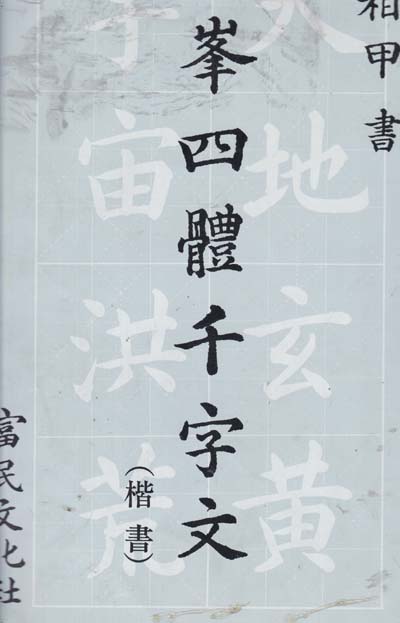 甲書
峯四體千字文
(楷書)
富民文化社
地玄黃
宙洪荒